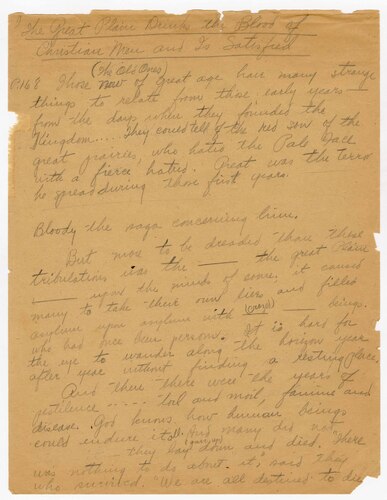 "The Great Plain Drinks the Blood of
Christian Men and Is Satisfied
(The Old Ones)
P.168 Those now of great age have many strange
things to relate from those early years—
from the days when they founded the
Kingdom.... They could tell of the red son of the
great prairies, who hated the Pale Face
with a fierce hatred. Great was the terror
he spread during those first years.
Bloody the saga concerning him.
But more to be dreaded than these
tribulations was the ___ the great Plain
___ upon the minds of some. it caused
many to take their own lives and filled
asylum upon asylum with ___ beings
who had once been persons. It is hard for
the eye to wander along the horizon year
after year without finding a resting place,
And then there were the years of
pestilence ..... toil and moil, famine and
disease. God knows how human beings
could endure it all. And many did not
... they lay down and died. "There
was nothing to do about it," said they
who survived. "We are all destined to die